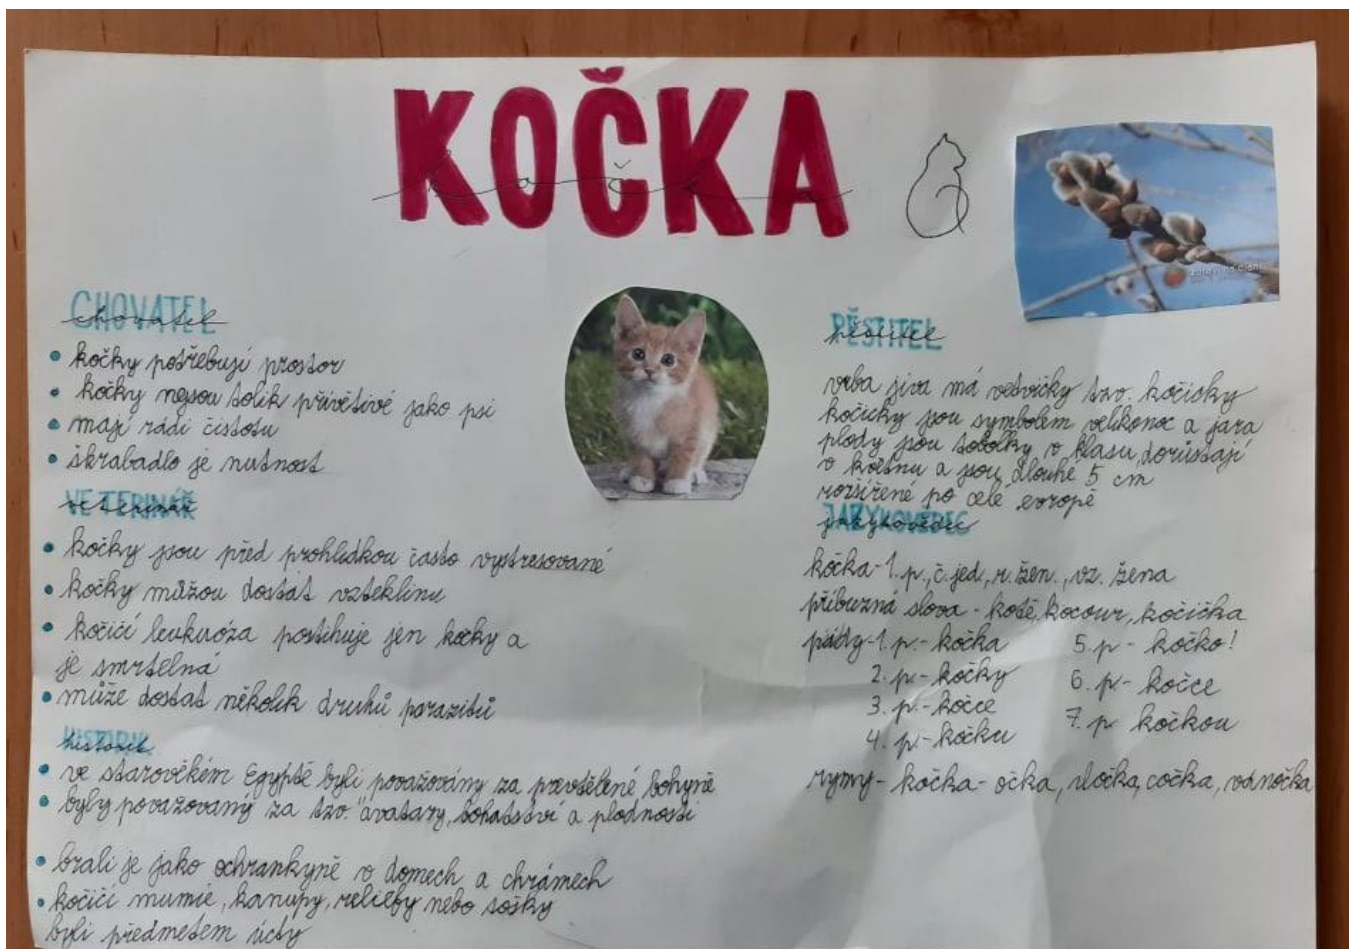 KOČKA
kočka
CHOVATEL
chovatel
kočky potřebují prostor
kočky nejsou tolik přívětivé jako psi
mají rádi čistotu
škrabadlo je nutnost
VETERINÁŘ
veterinář
kočky jsou před prohlídkou často vystresované
kočky můžou dostat vzteklinu
kočičí leukóza postihuje jen kočky a
je smrtelná
může dostat několik druhů parazitů
HISTORIK
historik
ve starověkém Egyptě byli považovány za převtělené bohyně
byly považovaný za tzv. "avatary, bohatství a plodnosti
brali je jako ochrankyně v domech a chrámech
kočičí mumie, kanupy, reliéfy nebo sošky
byli předmětem úcty
PĚSTITEL
pěstitel
vrba jíva má větvičky tzv. kočičky
kočičky jsou symbolem velikonoc a jara
plody jsou tobolky v klasu, dorůstají
v květnu a jsou dlouhé 5 cm
rozšířené po celé evropě
JAZYKOVĚDEC
jazykovědec
kočka-1. p., č. jed., r. žen., vz. žena
příbuzná slova - kotě, kocour, kočička
pády-1. p.- kočka 5. p - kočko!
2. p.- kočky 6. p- kočce
3. p.- kočce 7. p. kočkou
4. p.- kočku
rýmy- kočka- očka, vločka, čočka, vánočka